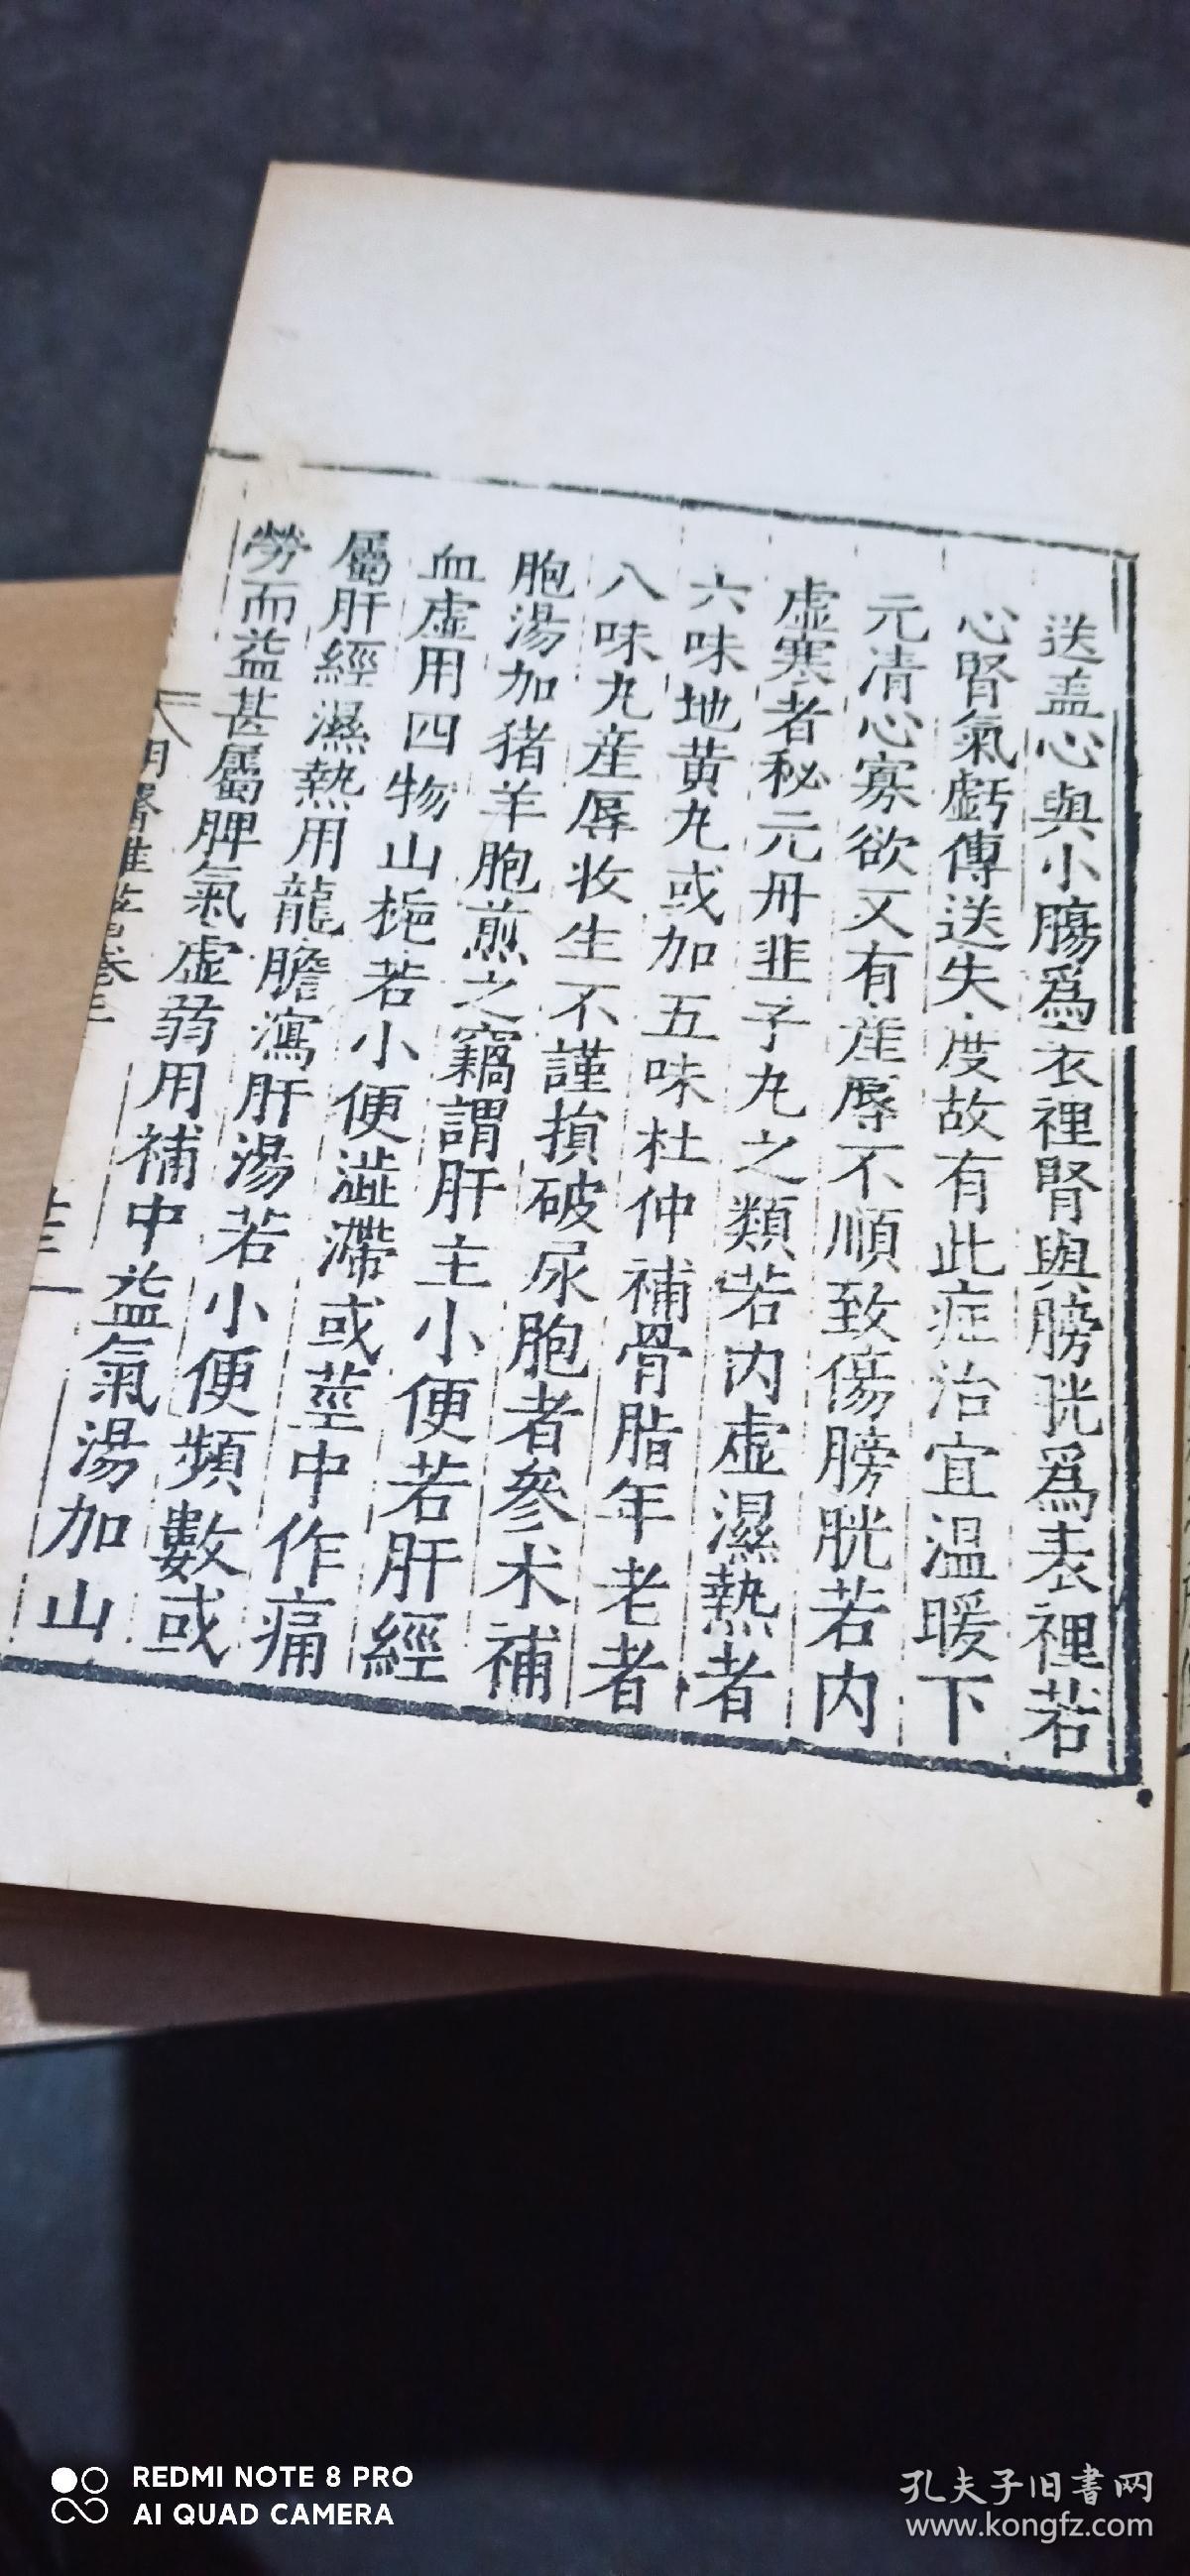 送盖心與小腸爲表裡腎與膀胱爲表裡若
心腎氣虧傳送失度故有此症治宜温暖下
元清心寡欲又有産蓐不順致傷膀胱若内
虛寒者秘元丹韭子丸之類若内虛濕熱者
六味地黄丸或加五味杜仲補骨脂年老者
八味丸産蓐收生不謹損破尿胞者參术補
胞湯加猪羊胞煎之竊謂肝主小便若肝經
血虛用四物山梔若小便澁滯或莖中作痛
屬肝經濕熱用龍膽瀉肝湯若小便頻數或
勞而益甚屬脾氣虛弱用補中益氣湯加山
明醫雜著卷三
REDMI NOTE 8 PRO
AI QUAD CAMERA
孔夫子旧書网
www.kongfz.com